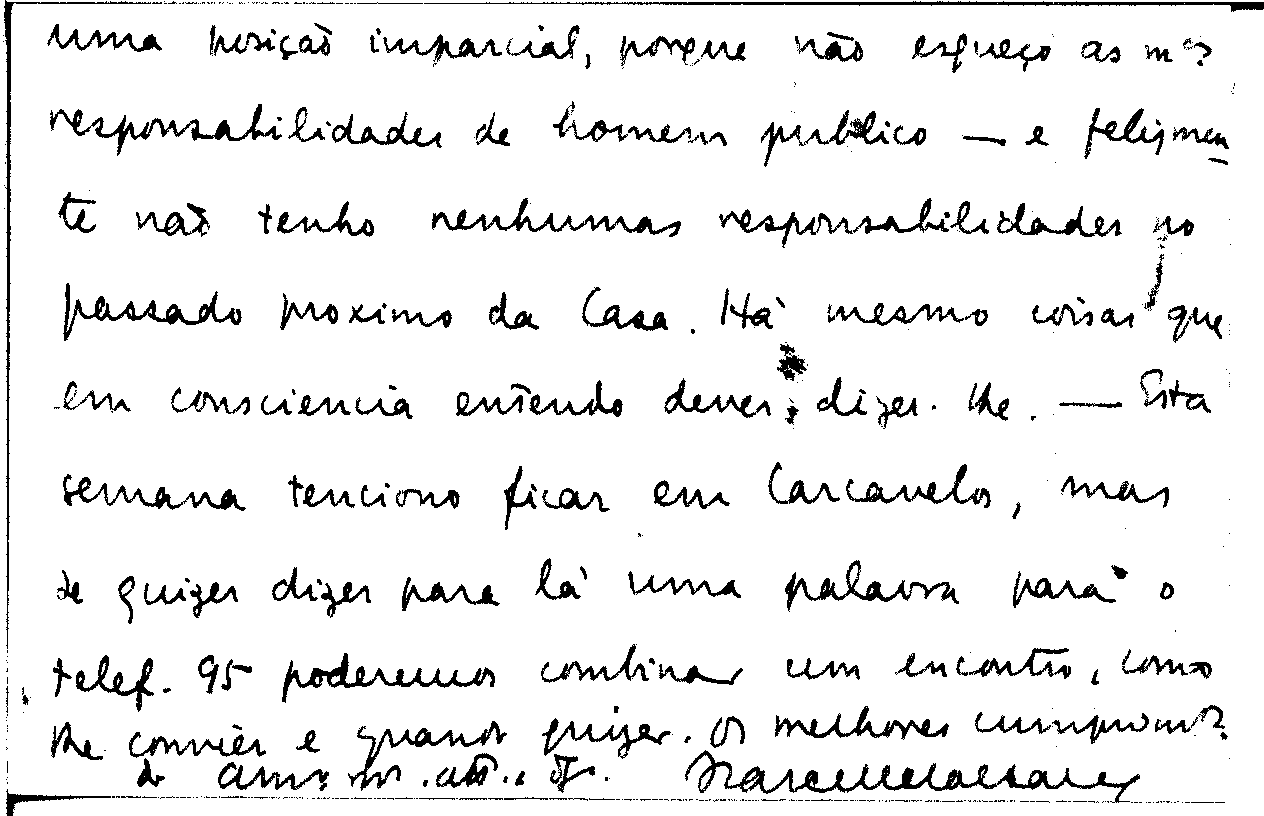 uma posição imparcial, porque não esqueço as mas
responsabilidades de homem publico — e felizmen-
te não tenho nenhumas responsabilidades no
passado proximo da Casa. Há mesmo coisas que
em consciencia entendo dever dizer-lhe. — Esta
semana tenciono ficar em Carcavelos, mas
se quizer dizer para lá uma palavra para o
telef. 95 poderemos combinar um encontro, como
lhe convier e quando quizer. Os melhores cumprimtos
do